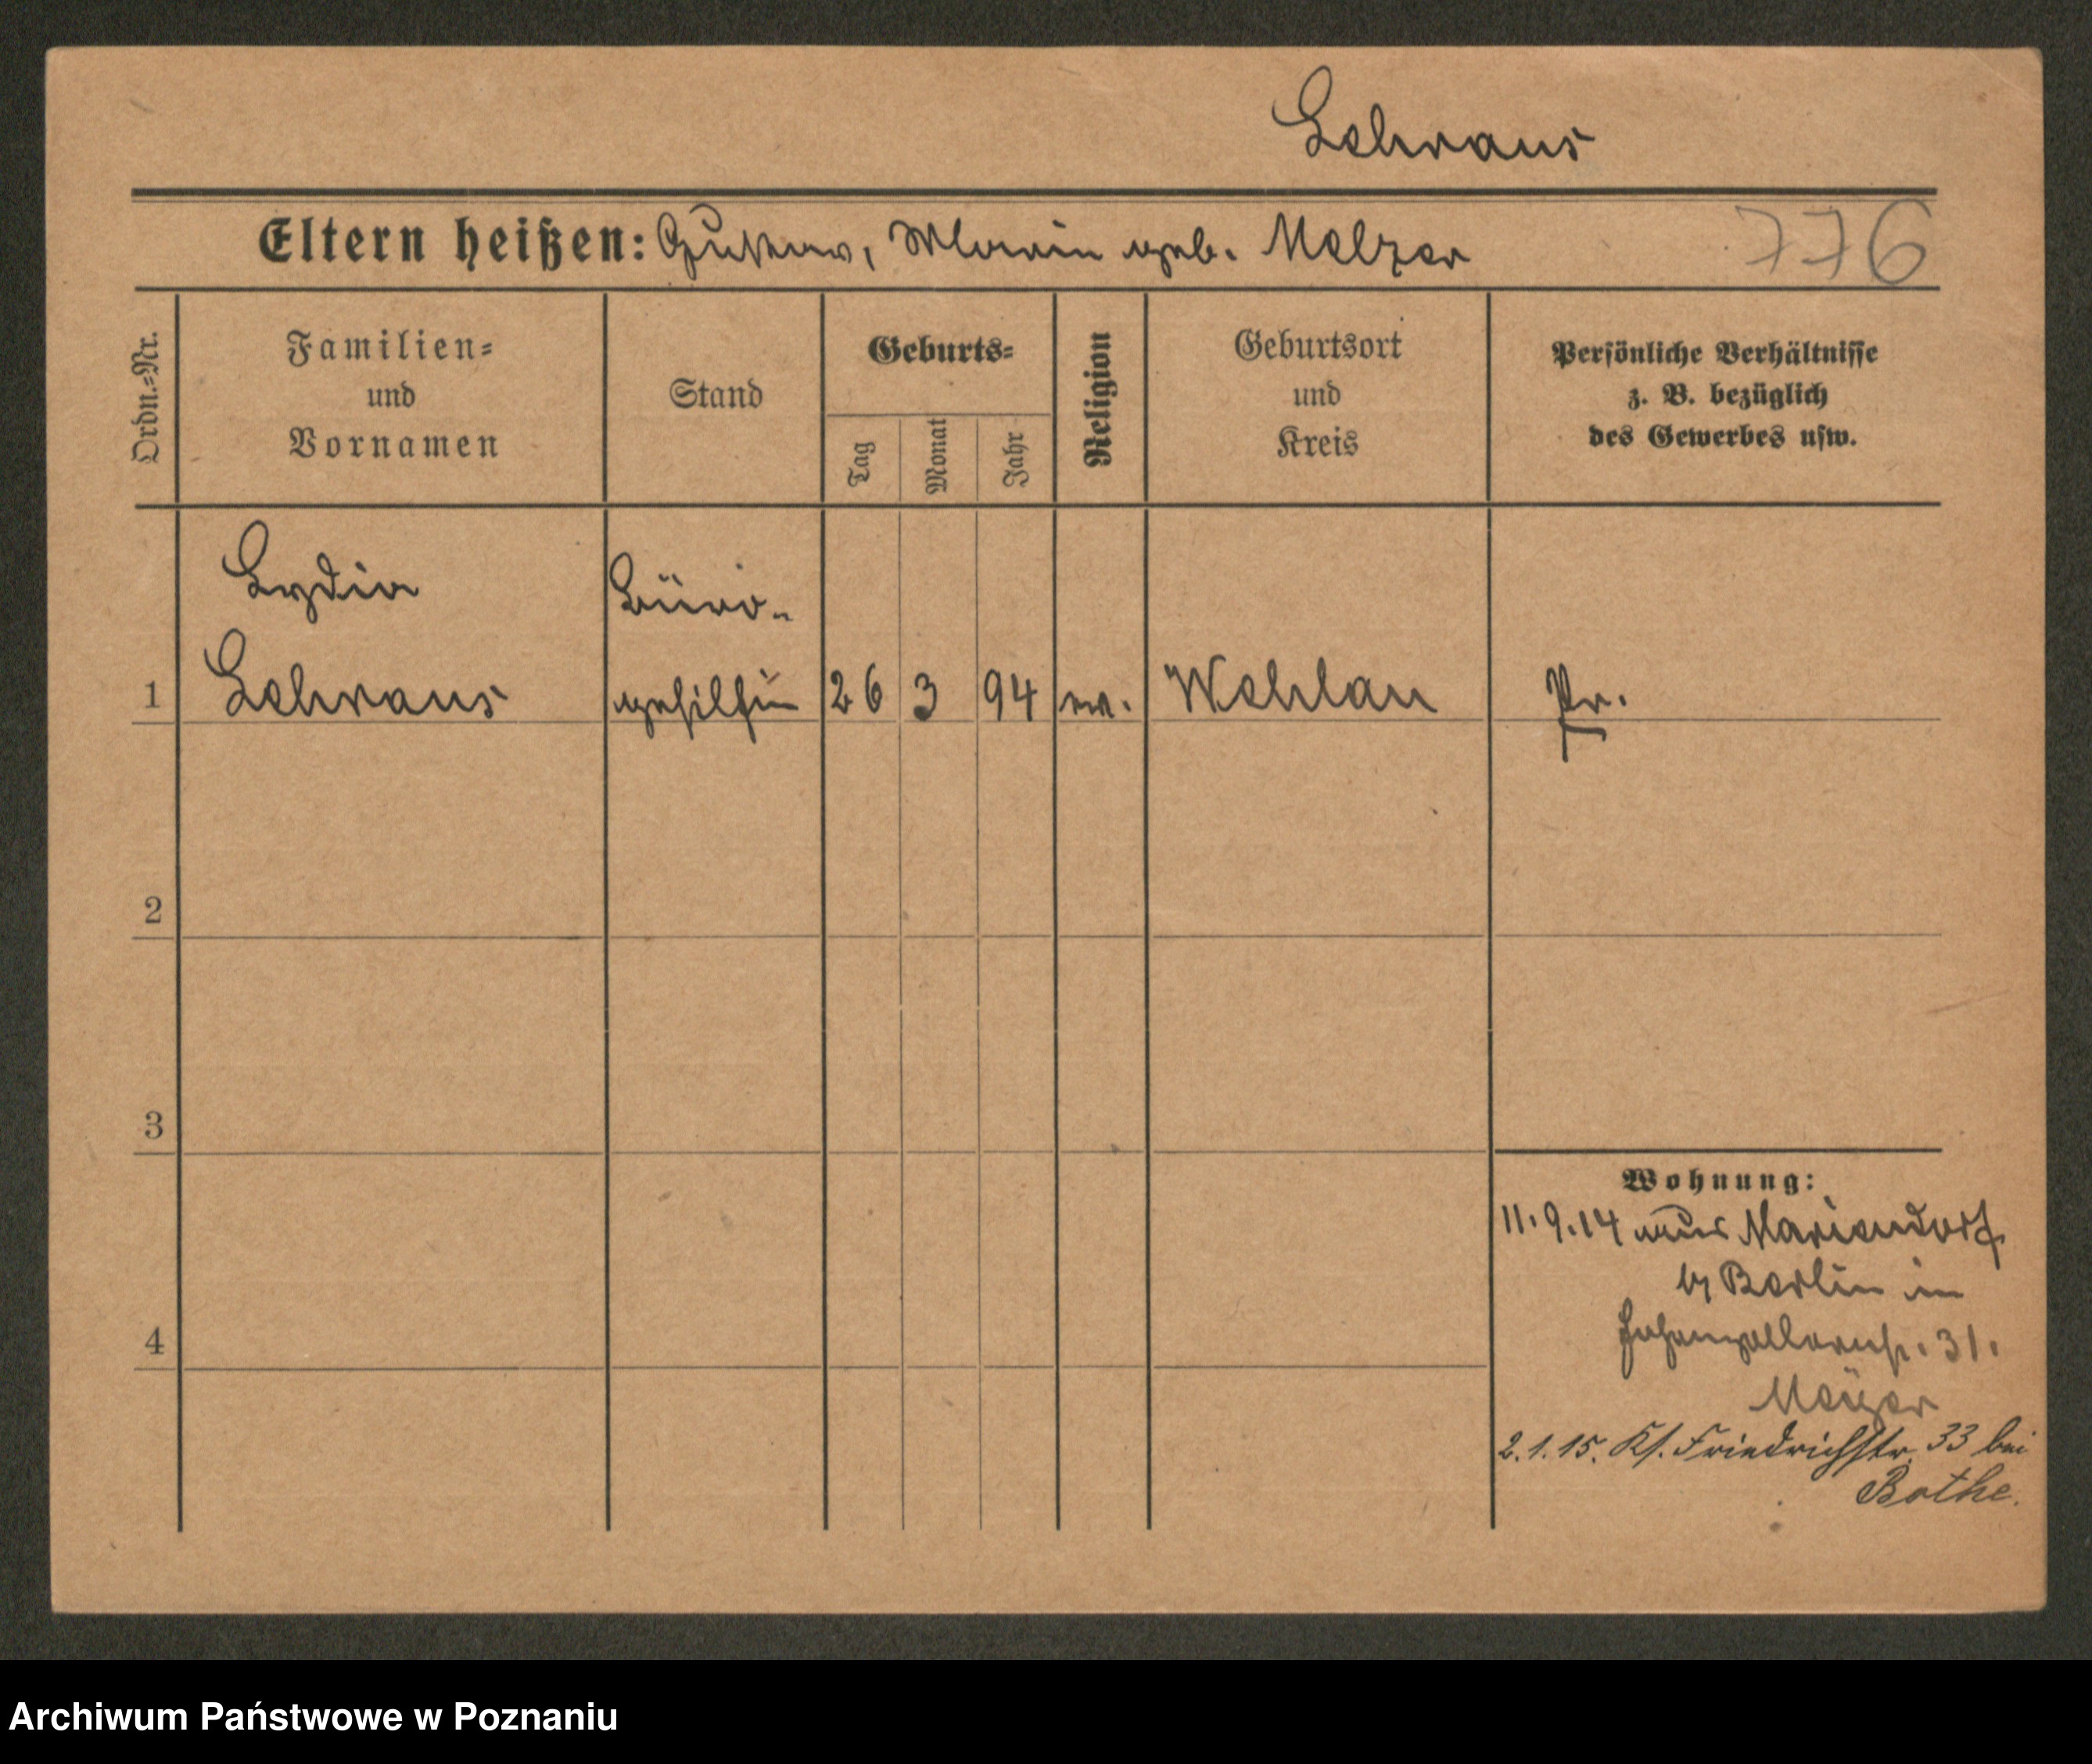 Lehraus
Eltern heißen: Gustav, Marie geb. Melzer 776
Ordn.=Nr.
Familien=
und
Vornamen
Stand
Geburts=
Tag
Monat
Jahr
Religion
Geburtsort
und
Kreis
Persönliche Verhältnisse
z. B. bezüglich
des Gewerbes usw.
Lydia Büro-
1 Lehraus gehilfin 26 3 94 ev. Wehlau Pr.
2
3
4
Wohnung:
11.9.14 aus Mariendorf
b/ Berlin in
Hohenzollernstr. 31.
Meyer
2.1.15. Ks. Friedrichstr. 33 bei
Bothe.
Archiwum Państwowe w Poznaniu